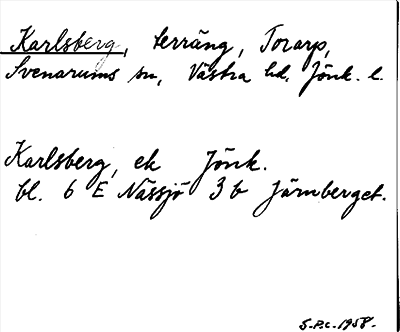 Karlsberg, terräng, Torarp,
Svenarums sn, Västra hd, Jönk. l.
Karlsberg, ek Jönk.
bl. 6 E Nässjö 3 b Järnberget.
S.P.C. 1958.